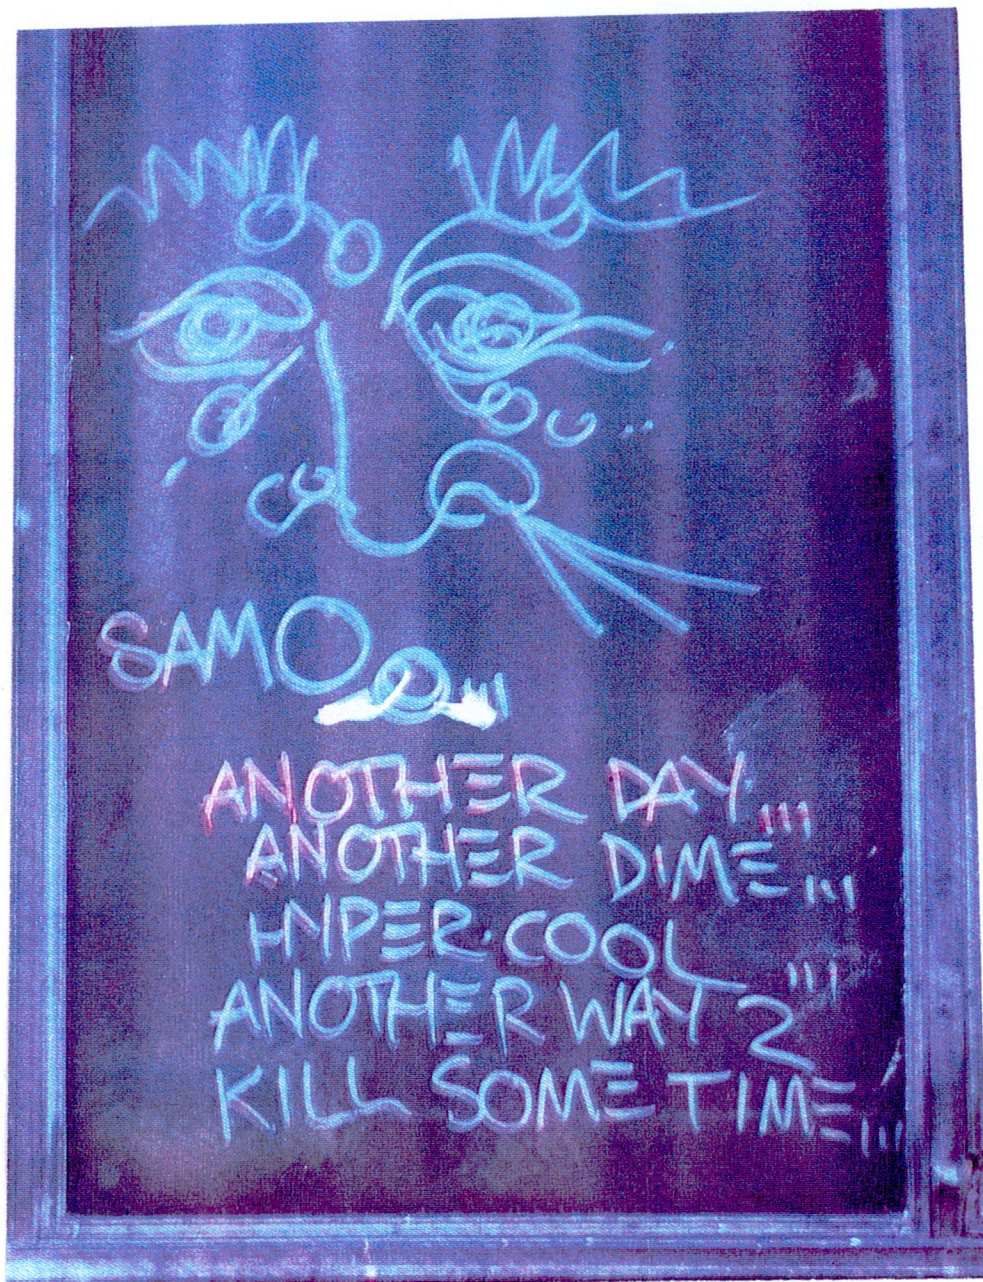 SAMO©...
ANOTHER DAY...
ANOTHER DIME...
HYPER·COOL
ANOTHER WAY 2"'
KILL SOME TIME...